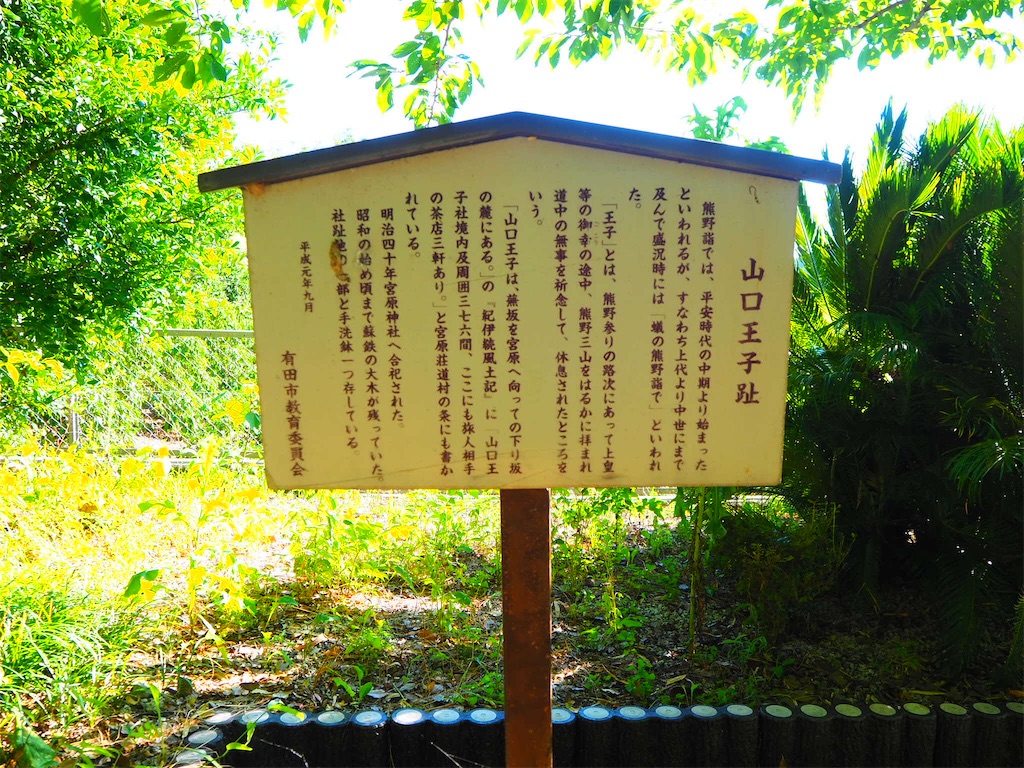 山口王子趾
熊野詣では、平安時代の中期より始まった
といわれるが、すなわち上代より中世にまで
及んで盛況時には「蟻の熊野詣で」といわれ
た。
「王子」とは、熊野参りの路次にあって上皇
等の御幸の途中、熊野三山をはるかに拝まれ
道中の無事を祈念して、休息されたところを
いう。
「山口王子は、蕪坂を宮原へ向っての下り坂
の麓にある。」の『紀伊続風土記』に「山口王
子社境内及周囲三七六間、ここにも旅人相手
の茶店三軒あり。」と宮原荘道村の条にも書か
れている。
明治四十年宮原神社へ合祀された。
昭和の始め頃まで蘇鉄の大木が残っていた。
社趾地の一部と手洗鉢一つ存している。
平成元年九月
有田市教育委員会